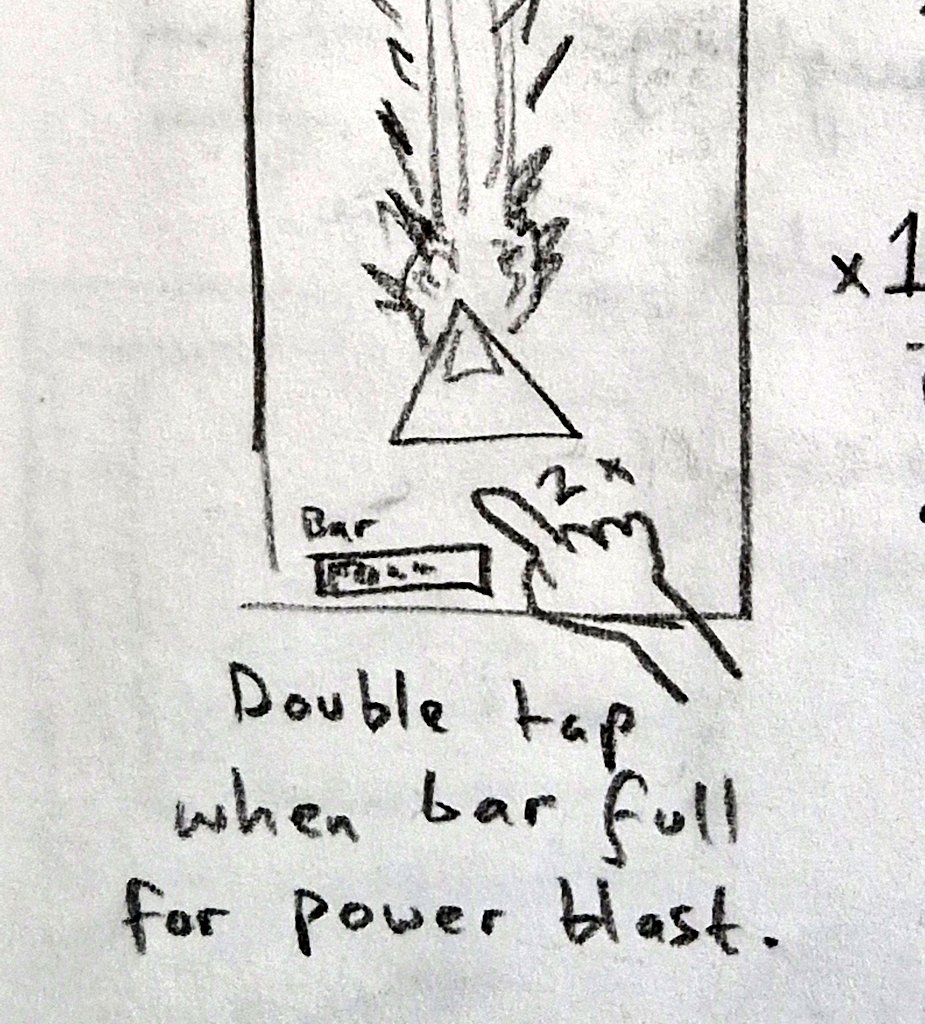 x1
2x
Bar
Double tap
when bar full
for power blast.